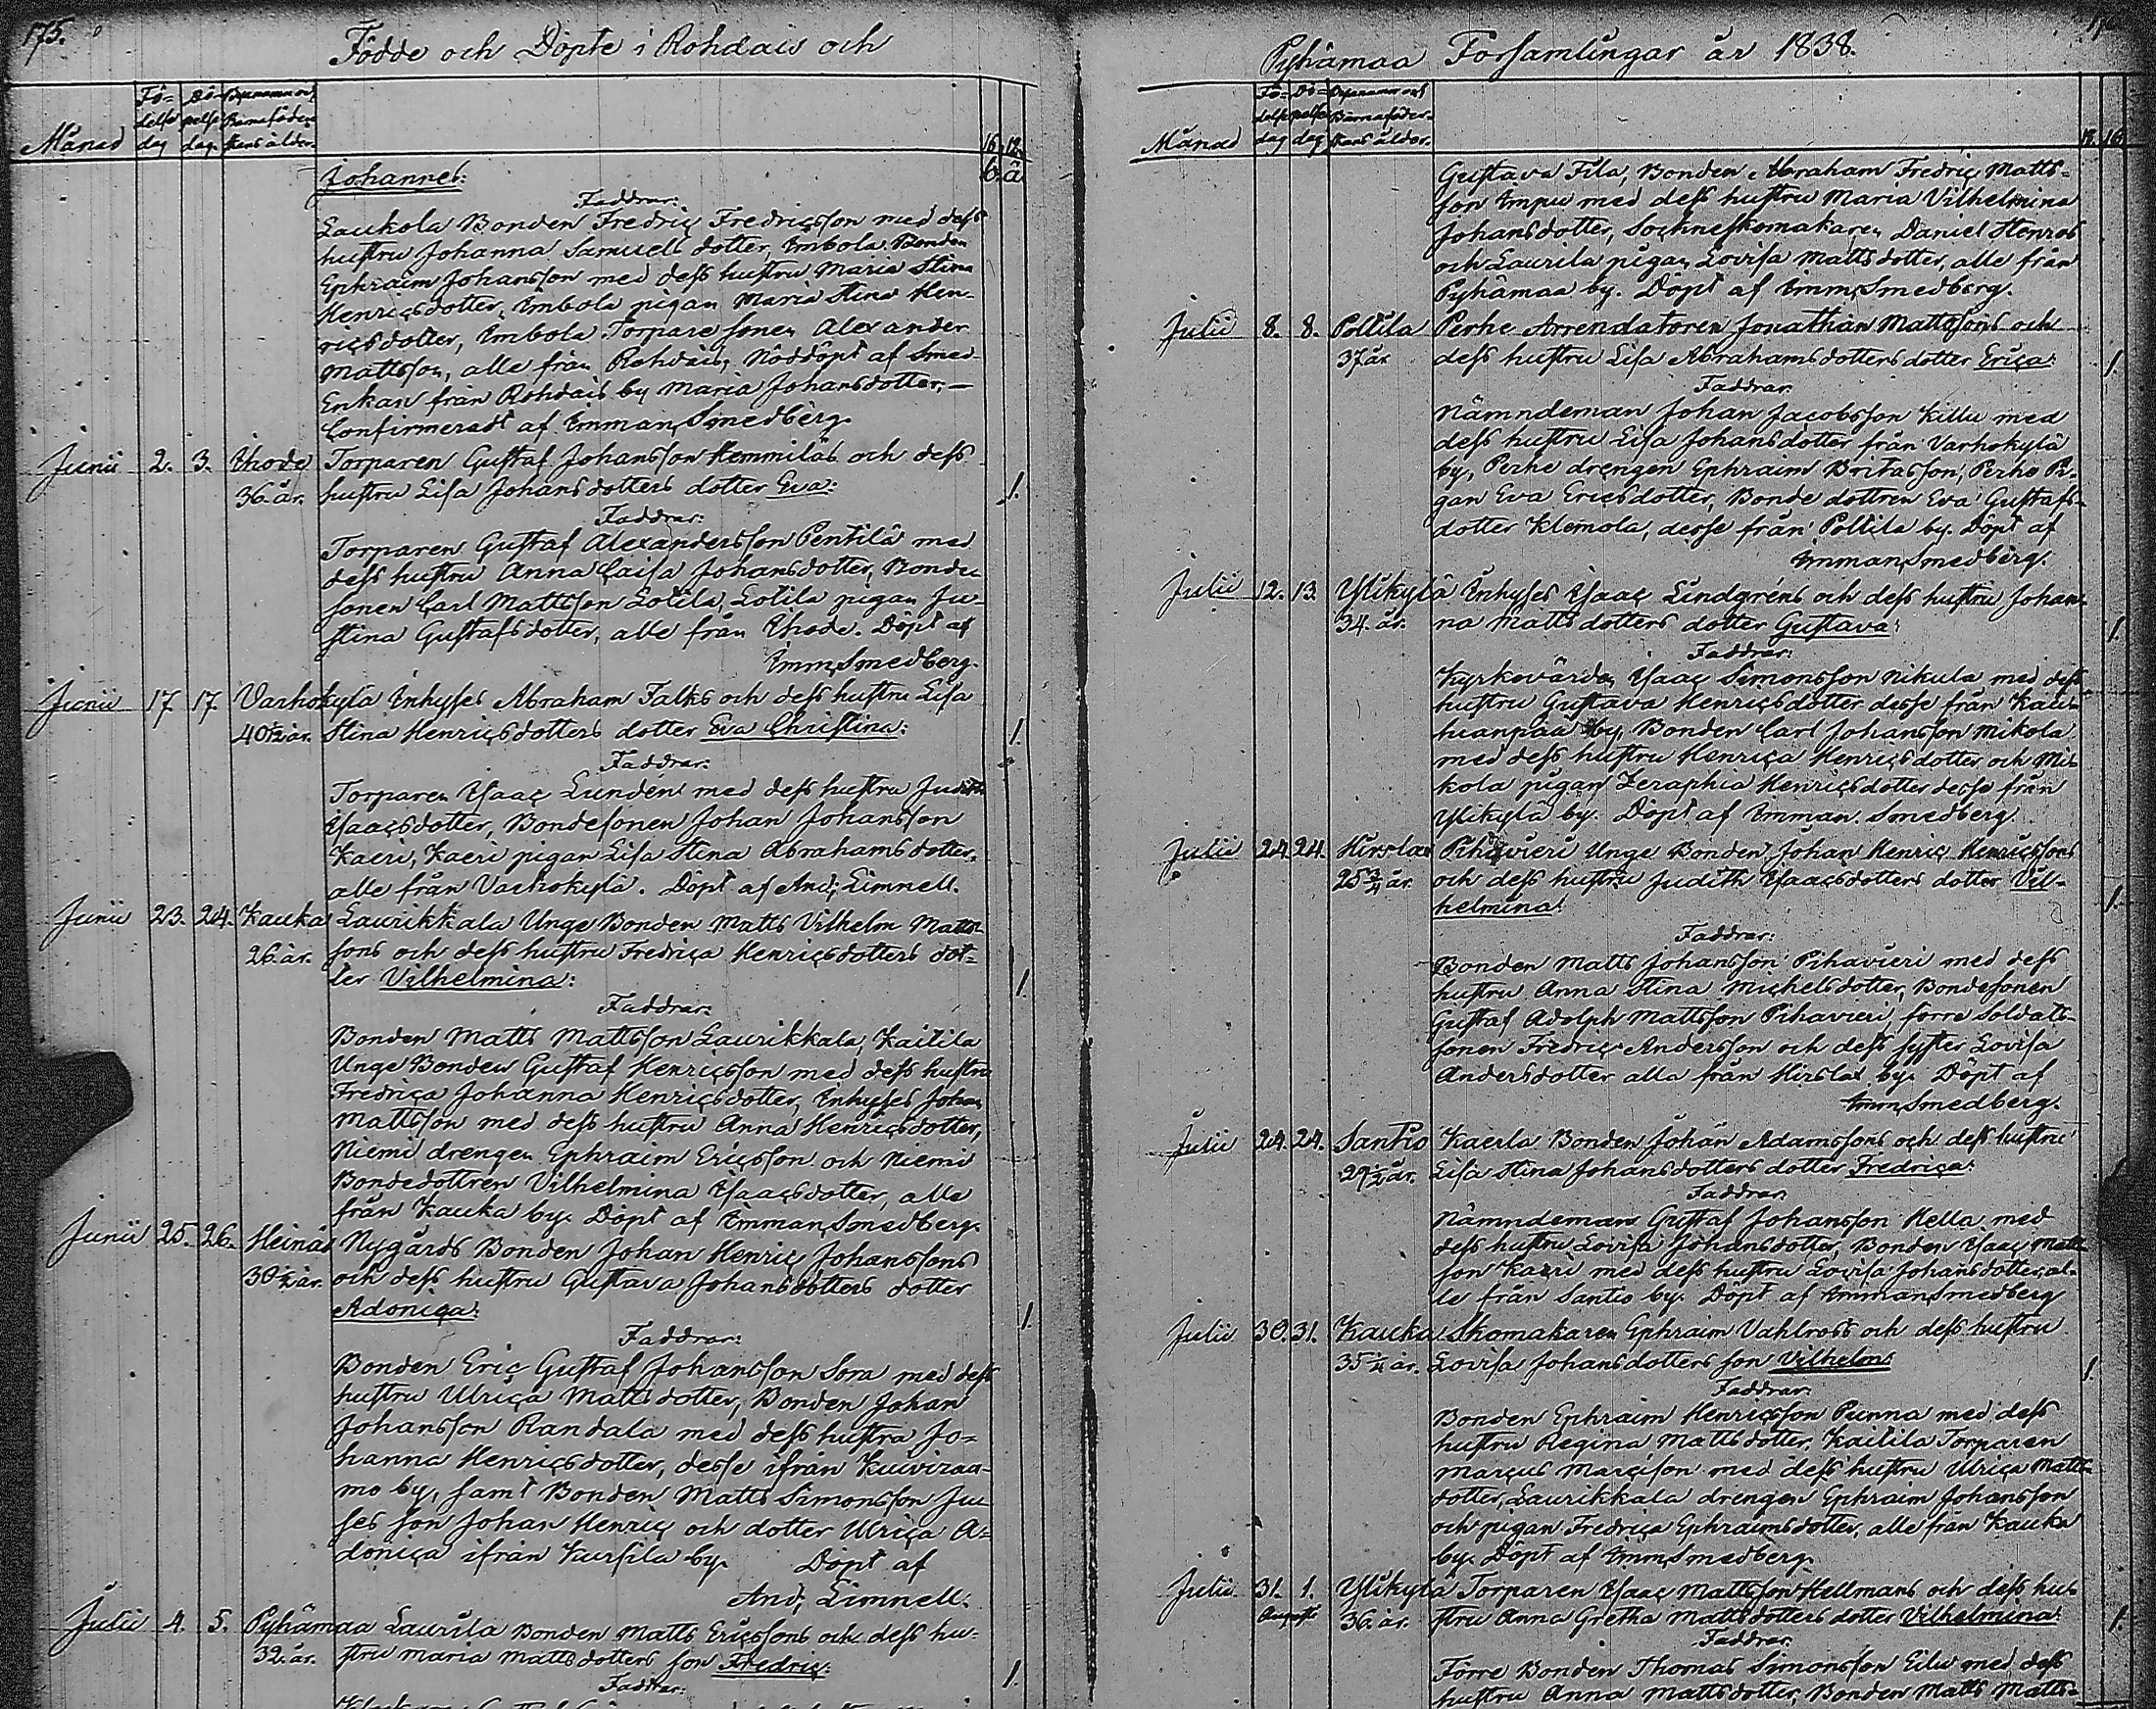 175.
Födde och Döpte i Rohdais och
Månad
Fö-
delse
dag
Dö-
pelse
dag.
Byanamn och
Barnaföder-
skans ålder.
16. 12.
6. a.
Johannes:
Faddrar:
Laukola Bonden Fredriç Fredriçsson med dess
hustru Johanna Samuels dotter, Imbola Bonden
Ephraim Johansson med dess hustru Maria Stina
Henriçsdotter, Imbola pigan Maria Stina Hen-
riçsdotter, Imbola Torpare sonen Alexander
Mattsson, alle från Rohdais, Nöddöpt af Smed
Enkan från Rohdais by Maria Johansdotter, —
Confirmeradt af Imman, Smedberg.
Junii 2. 3. Ihode Torparen Gustaf Johansson Hemmiläs och dess
36. år. hustru Lisa Johansdotters dotter Eva: 1.
Faddrar:
Torparen Gustaf Alexandersson Pentilä med
dess hustru Anna Caisa Johansdotter, Bonde
sonen Carl Mattsson Lotila, Lotila pigan Ju-
stina Gustafsdotter, alle från Ihode. Döpt af
Imm, Smedberg.
Junii 17 17 Varhokyla Inhyses Abraham Falks och dess hustru Lisa
40 1/2 år. Stina Henriçsdotters dotter Eva Christina: 1.
Faddrar:
Torparen Ysaaç Lundén med dess hustru Judith
Ysaaçsdotter, Bondesonen Johan Johansson
Kaeri, Kaeri pigan Lisa Stina Abrahamsdotter,
alle från Varhokylä. Döpt af And; Limnell.
Junii 23. 24. Kauka Laurikkala Unge Bonden Matts Vilhelm Matts-
26. år. sons och dess hustru Fredriça Henriçsdotters dot-
ter Vilhelmina: 1.
Faddrar:
Bonden Matts Mattsson Laurikkala, Kailila
Unge Bonden Gustaf Henriçsson med dess hustru
Fredriça Johanna Henriçsdotter, Inhyses Johan
Mattsson med dess hustru Anna Henriçsdotter,
Niemi drengen Ephraim Ericsson och Niemi
Bondedottren Vilhelmina Ysaaçsdotter, alle
från Kauka by. Döpt af Imman, Smedberg.
Junii 25. 26. Heinäs Nygårds Bonden Johan Henriç Johanssons
år. och dess hustru Gustava Johansdotters dotter
Adoniça: 1.
Faddrar:
Bonden Eriç Gustaf Johansson Sora med dess
hustru Ulriça Mattsdotter, Bonden Johan
Johansson Randala med dess hustra Jo-
hanna Henriçsdotter, desse ifrån Kuivraa-
mo by, samt Bonden Matts Simonsson Ju-
ses son Johan Henriç och dotter Ulriça A-
doniça ifrån Kursila by. Döpt af
And; Limnell.
Julii 4. 5. Pyhämaa Laurila Bonden Matts Ericssons och dess hu-
32. år. stru Maria Mattsdotters son Fredriç: 1.
Faddrar:
Pyhämaa Forsamlingar år 1838.
Månad
Fö-
delse
dag
Dö-
pelse
dag
Byanamn och
Barnaföder-
skans ålder.
18. 16
Gustava Fila, Bonden Abraham Fredriç Matts-
son Impu med dess hustru Maria Vilhelmina
Johansdotter, Sochneskomakaren Daniel Stenros
och Laurila pigan Lovisa Mattsdotter, alle från
Pyhämaa by. Döpt af Imm, Smedberg.
Julii 8. 8. Pollila Perhe Arrendatoren Jonathan Mattssons och
37 år dess hustru Lisa Abrahamsdotters dotter Eriça: 1.
Faddrar
Nämndeman Johan Jaçobsson Killu med
dess hustru Lisa Johansdotter från Varhokylä
by, Perhe drengen Ephraim Britasson, Perhe Pi-
gan Eva Ericsdotter, Bonde dottren Eva Gustafs-
dotter Klemola, desse från Pollila by. Döpt af
Imman, Smedberg.
Julii 12. 13. Ylikylä Inhyses Ysaaç Lindgréns och dess hustru Johan-
34. år. na Mattsdotters dotter Gustava: 1.
Faddrar:
Kyrkovärden Ysaaç Simonsson Nikula med dess
hustru Gustava Henriçsdotter desse från Kau-
hianpää by, Bonden Carl Johansson Mikola
med dess hustru Henriça Henriçsdotter och Mi-
kola pigan Zeraphia Henriçsdotter desse från
Ylikylä by. Döpt af Imman. Smedberg.
Julii 24. 24. Hirslax Pihavieri Unge Bonden Johan Henriç Henriçssons
25 3/4 år. och dess hustru Judith Ysaaçsdotters dotter Vil-
helmina: 1.
Faddrar:
Bonden Matts Johansson Pihavieri med dess
hustru Anna Stina Michelsdotter, Bondesonen
Gustaf Adolph Mattsson Pihavieri, förre Soldats-
sonen Fredriç Andersson och dess syster Lovisa
Andersdotter alla från Hirslax by. Döpt af
Imm, Smedberg.
Julii 24. 24. Santio Kaerla Bonden Johan Adamssons och dess hustru
år. Lisa Stina Johansdotters dotter Fredriça: 1
Faddrar
Nämndeman Gustaf Johansson Hella med
dess hustru Lovisa Johansdotter, Bonden Ysaaç Matts-
son Kaeri med dess hustru Lovisa Johansdotter, al-
le från Santio by. Döpt af Imman, Smedberg
Julii 30. 31. Kauka Skomakaren Ephraim Vahlross och dess hustru
35 1/4 år. Lovisa Johansdotters son Vilhelm: 1.
Faddrar.
Bonden Ephraim Henriçsson Punna med dess
hustru Regina Mattsdotter, Kailila Torparen
Marçus Marçisson med dess hustru Ulriça Matts-
dotter, Laurikkala drengen Ephraim Johansson
och pigan Fredriça Ephraimsdotter, alle från Kauka
by. Döpt af Imm, Smedberg.
Julii 31. 1. Ylikylä Torparen Ysaaç Mattsson Hellmans och dess hu-
Augusti 36. år. stru Anna Gretha Mattsdotters dotter Vilhelmina: 1.
Faddrar.
Förre Bonden Thomas Simonsson Eilu med dess
hustru Anna Mattsdotter, Bonden Matts Matts-